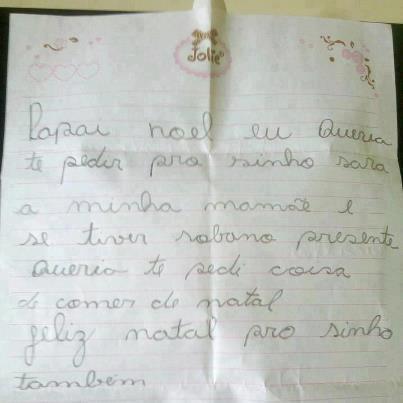 Jolie
Papai noel eu Queria
te pedir pro sinho sara
a minha mamãe e
se tiver sobano presente
Queria te pedi coisa
de comer de natal
feliz natal pro sinho
também